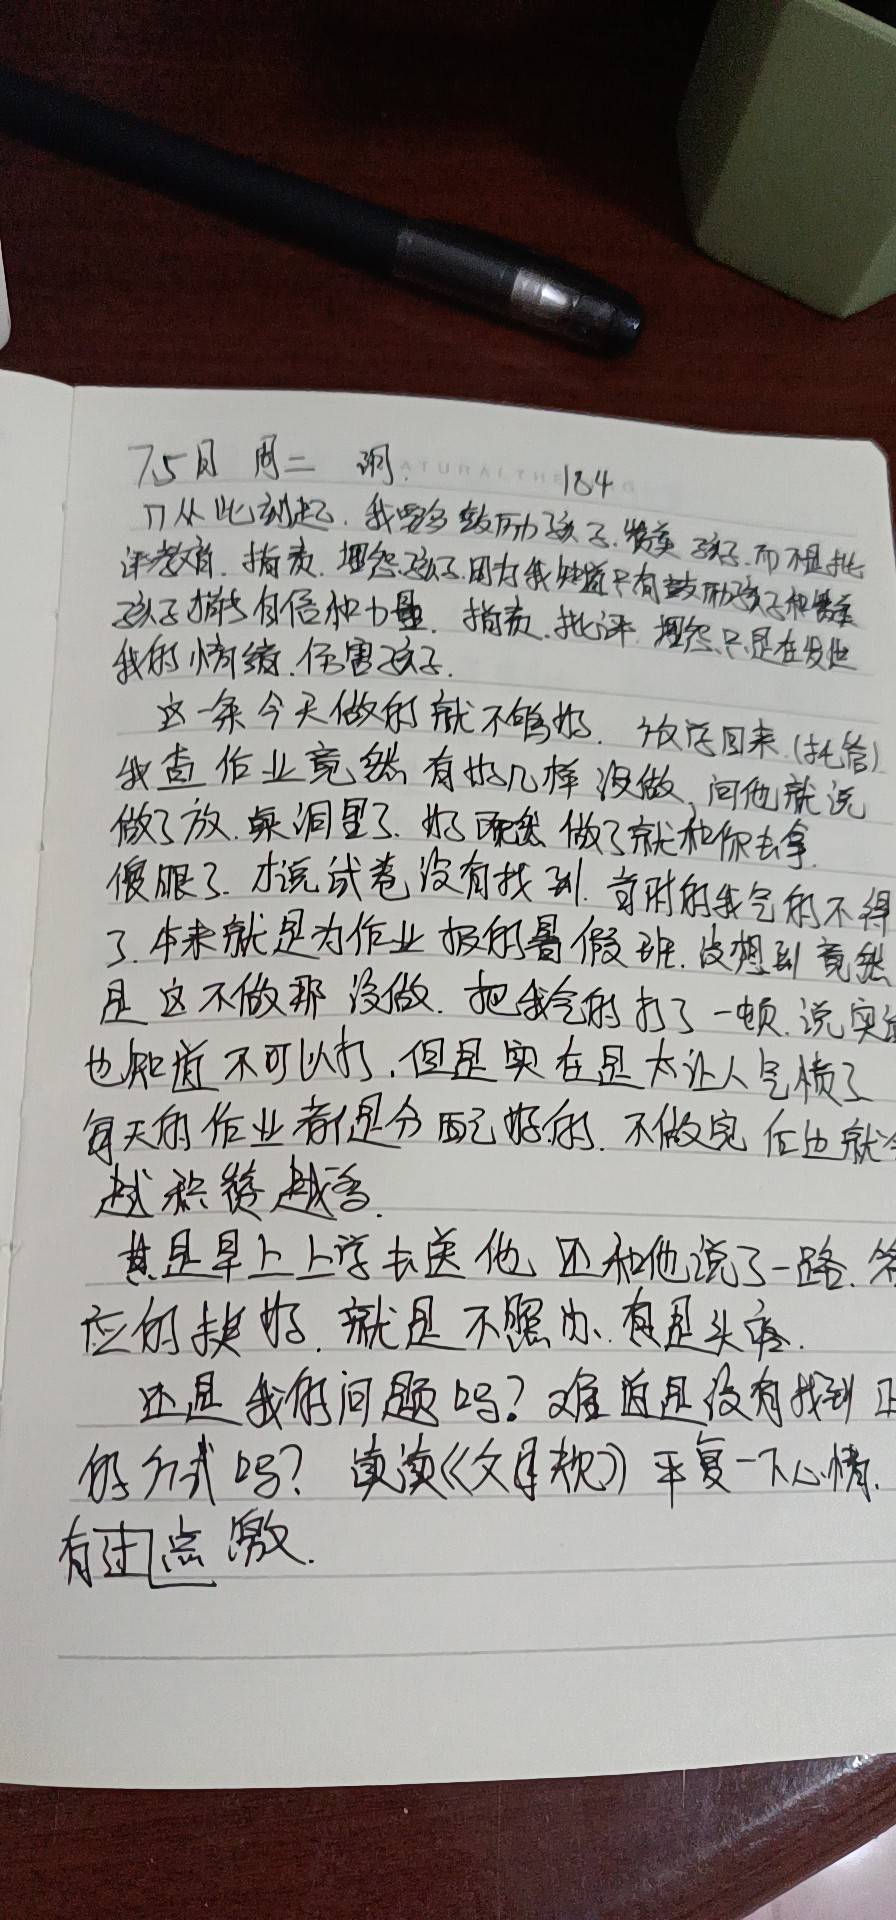 7.5日 周二 阴. 184
1) 从此刻起. 我要多鼓励孩子. 赞美孩子. 而不是批
评教育. 指责. 埋怨孩子. 因为我知道只有鼓励孩子和赞美
孩子 自信和力量. 指责. 批评. 埋怨. 只是在发泄
我的情绪. 伤害孩子.
这一条今天做的就不够好. 放学回来(托管)
我查作业竟然有好几样没做, 问他就说
做了放 洞里了. 好 做了就和你去拿.
傻眼了. 才说试卷没有找到. 当时的我气的不得
了. 本来就是为作业报的暑假班. 没想到竟然
是这不做那没做. 把我气的打了一顿. 说实
也知道不可以打. 但是实在是太让人气愤了
每天的作业都是分配好的. 不做完后边就会
越积攒越多.
真是早上上学去送他 还和他说了一路. 答
应的挺好. 就是不照办. 真是头疼.
还是我的问题吗? 难道是没有找到正
的方式吗? 读读《父母规》平复一下心情.
有 点激.